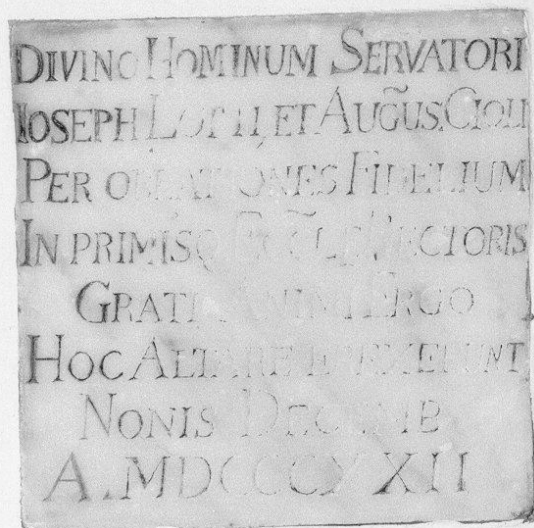 DIVINO HOMINUM SERVATORI
IOSEPH ET AUGUS. CIOLI
PER OBLATIONES FIDELIUM
IN PRIMISQ ECCLE RECTORIS
GRATI ANIMI ERGO
HOC ALTARE EREXERUNT
NONIS DECEMB
A. MDCCCXXII